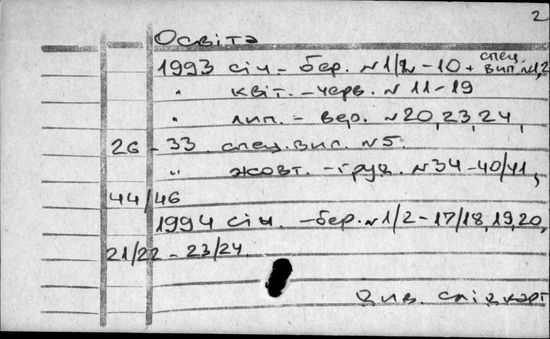 2
Освіта
1993 січ. – бер. N 1/2 – 10 + спец. вип. N 1,2
" квіт. – черв. N 11 – 19
" лип. – вер. N 20, 23, 24,
26 – 33. спец. вип. N 5.
" жовт. – груд. N 34 – 40/41,
44/46
1994 січ. – бер. N 1/2 – 17/18, 19, 20,
21/22 – 23/24.
Див. слід. карт